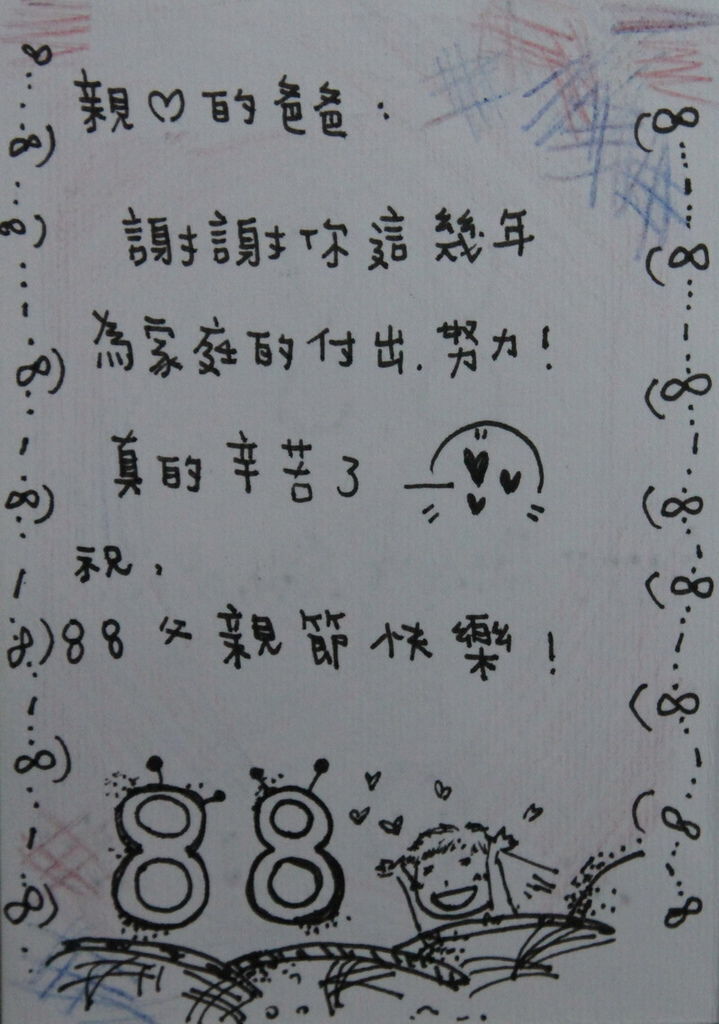 親♡的爸爸：
謝謝你這幾年
為家庭的付出.努力！
真的辛苦了
祝，
88父親節快樂！
88